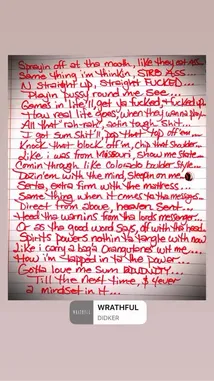 Sprayin off at the mouth, like they eat ass...
Same thing i'm thinkin, STRB ASS...
N straight up, straight FUCKED...
Playin pussy round me see...
Games in life'll get ya fucked, & fucked up
How real life goes, when they wanna play...
All that "rah-rah", actin tough shit...
I get sum shit'll, pop that top off em...
Knock that block off in, chip that shoulder...
Like i was from Missouri, show me state...
Comin through like Colorado boulder style...
Dozin'em with the mind, sleepin on me
Serta, extra firm with the mattress...
Same thing when it comes to tha messages...
Direct from above, heaven sent...
Head tha warnins from tha lords messenger...
Or as tha good word says, off with tha head...
Spirits powers nothin ta tangle with now
Like i carry a bag a Orangutans wit me...
How i'm tapped in to tha power...
Gotta love me sum
Till the next time, $ 4ever
2 mindset in it...
WRATHFUL
DIDKER